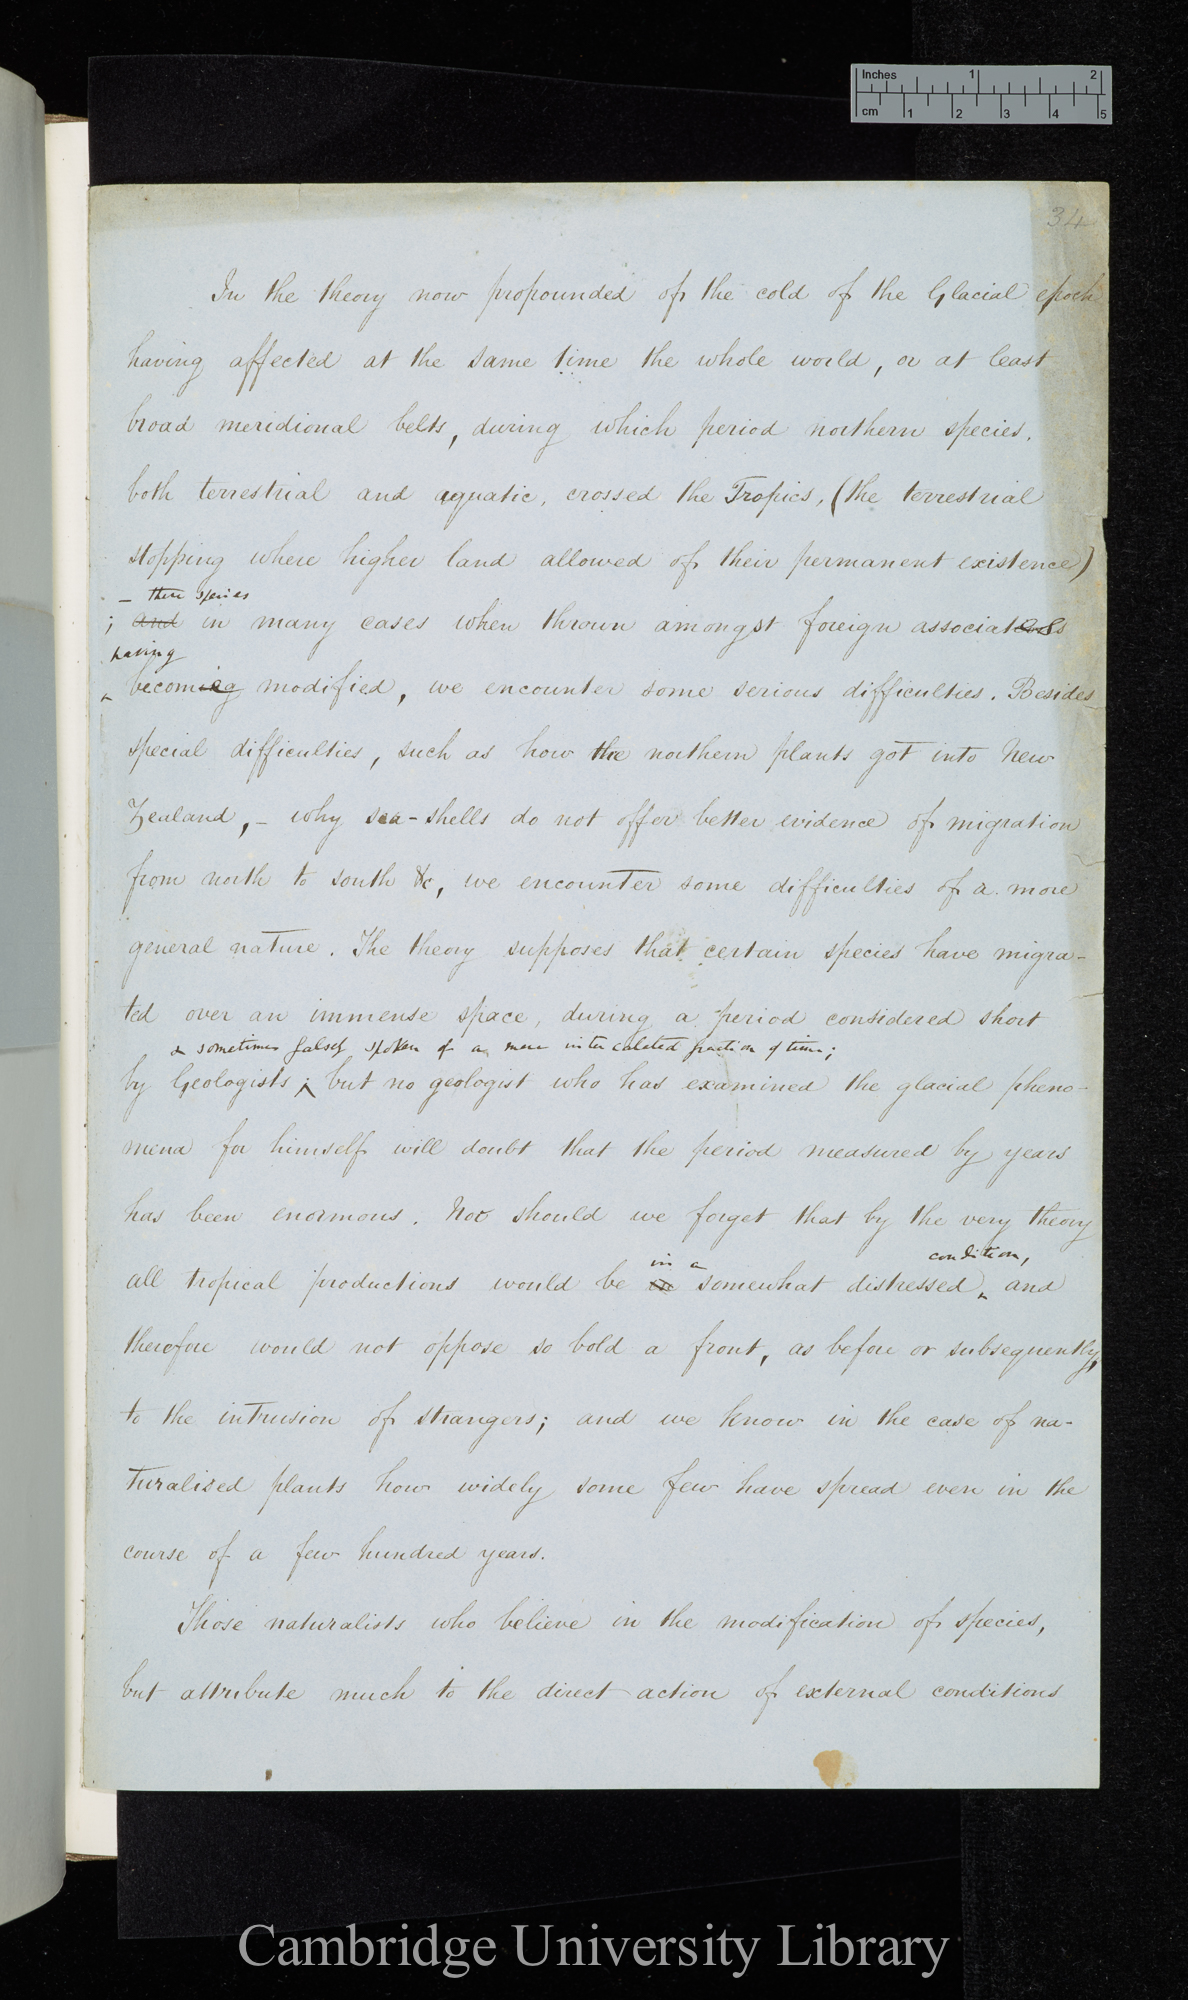 Inches 1 2
cm 1 2 3 4 5
34
In the theory now propounded of the cold of the Glacial epoch
having affected at the same time the whole world, or at least
broad meridional belts, during which period northern species,
both terrestrial and aquatic, crossed the Tropics, (the terrestrial
stopping where higher land allowed of their permanent existence)
– these species
; and in many cases when thrown amongst foreign associates
having
becoming modified, we encounter some serious difficulties. Besides
special difficulties, such as how the northern plants got into New
Zealand, – why sea-shells do not offer better evidence of migration
from north to south &c, we encounter some difficulties of a more
general nature. The theory supposes that certain species have migra-
ted over an immense space, during a period considered short
& sometimes falsely spoken of as mere intercalated fraction of time;
by Geologists; but no geologist who has examined the glacial pheno-
mena for himself will doubt that the period measured by years
has been enormous. Nor should we forget that by the very theory
in a condition,
all tropical productions would be somewhat distressed and
therefore would not oppose so bold a front, as before or subsequently,
to the intrusion of strangers; and we know in the case of na-
turalised plants how widely some few have spread even in the
course of a few hundred years.
Those naturalists who believe in the modification of species,
but attribute much to the direct action of external conditions
Cambridge University Library